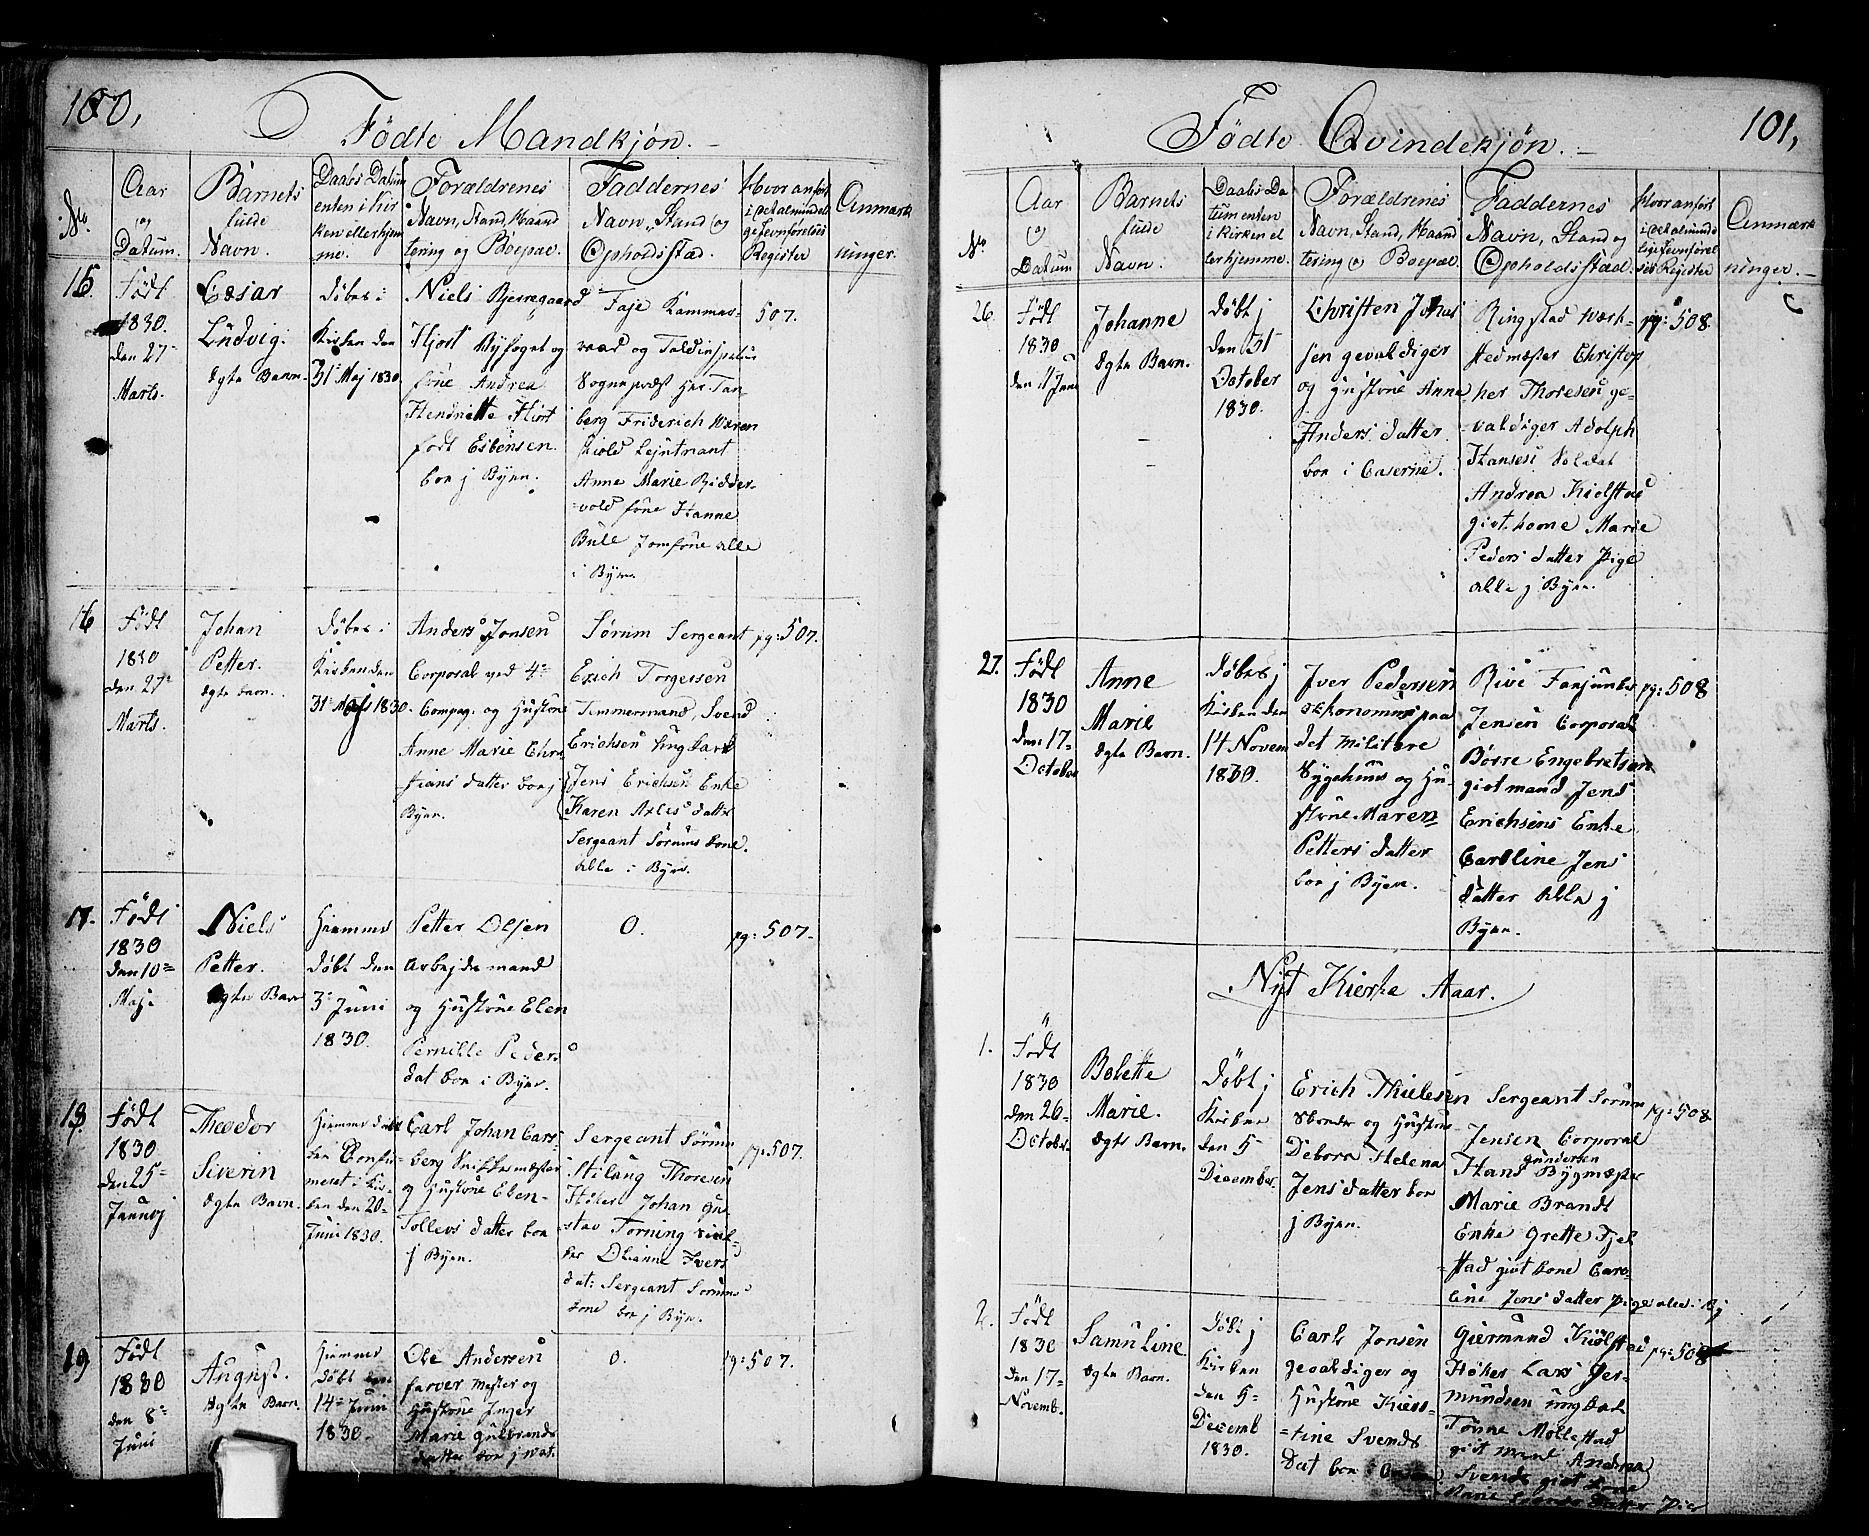 100,
Fødte Mandkjøn.
No.
Aar
og
Datum.
Barnets
fulde
Navn.
Daabs Datum
enten i Kir
ken eller hjem
me.
Forældrenes
Navn, Stand, Haand
tering og Boepæl.
Faddernes
Navn, Stand og
Opholdssted.
Hvor anført
i det almindeli
ge Jevnførelses
Register
Anmærk
ninger.
15.
Født
1830.
den 27-
Marts.
Cæsar
Ludvig.
ægte Barn.
døbes i
Kirken den
31 Maj 1830
Niels Bjerregaard
Hjort Byfoget og
fone Andrea
Hendriette Hjort
født Esbensen
boe j Byen.
Faje Kammer-
raad og Toldinspecteur
Sogneprest Her Tan-
berg Friderich Wæren
skiold Lejutnant
Anne Marie Ridder-
vold fone Hanne
Bull Jomfrue alle
i Byen.
507.
16
Født
1830
den 27-
Marts.
Johan
Petter.
ægte barn.
døbes i
Kirken den
31 Majs 1830.
Anders Jonsen
Corporal ved 4-
Compag. og Hustone
Anne Marie Chris
tians datter boe j
Byen.
Sørum Sergeant
Erich Torgersen
Timmermand, Svend
Erichsen Ungkarl
Jens Erichsen Enke
Karen Arles datter
Sergeant Sørums kone.
Alle i Byen.
pg: 507.
17.
Født
1830
den 10-
Maj.
Niels
Petter.
ægte Barn
Hiemme
døbt den
3- Juni
1830.
Petter Olsen
arbejdsmand
og Hustone Elen
Pernille Peders
dat boe i Byen.
0.
pg: 507.
18.
Født
1830.
den 25-
Januj
Theodor
Siverin
ægte Barn.
Hiemme døbt
den Confir-
meret i Kir-
ken den 20-
Juni 1830.
Carl Johan Cars-
berg Snikkermæster
og Hustone Elen-
Tollevs datter boe
j Byen.
Sergeant Sørum
Stilang Thoresen
Høker Johan Gu-
stav Torning
Olianne Ivers
dat: Sergeant Sørums
kone boe j Byen.
pg: 507.
19
Født
1830
den 8-
Juni
August.
ægte Barn.
Hiemme
døbt den
14- Juni
1830.
Ole Andersen
farver mester og
Hustone Inger
Marie Gulbrands
datter boe j
0.
pg: 507.
101,
Fødte Qvindekjøn.
No
Aar
og
Datum
Barnets
fulde
Navn.
Daabs Da
tum enten
i Kirken el
ler hjemme.
Forældrenes
Navn, Stand, Haand
tering og Boepæl.
Faddernes
Navn, Stand og
Opholdssted.
Hvor anført
i det alminde
lige Jevnførel
ses Register
Anmærk
ninger.
26.
Født
1830
den 11 Juni
Johanne
ægte Barn.
døbt j
den 31
October
1830.
Christen Johns
sen gevaldiger
og Hustone Anne
Anders datter
boe i Caserne.
Ringstad Værk-
stedmæster Christop
her Thoresen ge-
valdiger Adolph
Hansen Soldat
Andrea Kiolstad
gift kone Marie
Peders datter Pige
alle j Byen.
pg: 508.
27.
Født
1830
den 17-
October
Anne
Marie
ægte Barn.
døbes j
Kirken den
14 Novem
1830.
Iver Pedersen
økonomus paa
det Militære
Sygehuus og Hu-
stone Maren
Petters datter
boe j Byen.
Rive Fanjunker
Jensen Corporal
Børre Engebretsen
giftmand Jens
Erichsens Enke
Caroline Jens
datter Alle j
Byen.
pg: 508
Nyt Kierke Aaar.
1.
Født
1830
den 26-
October
Bolette
Marie.
ægte Barn.
døbt j
Kirken
den 5-
December.
Erich Thielesen
og Hustone
Debora Helena
Jens datter boe
j Byen.
Sergeant Sørum
Jensen Corporal
Gundersen
Hans Bygmæster
Marie Brandt
Enke Grette Fjel
stad gift kone Caro-
line Jens datter Pige alle i By
pg: 508
2.
Født
1830
den 17-
Novemb.
Samuline
ægte Barn.
døbt j
Kirken
den 5-
Decemb
1830.
Carl Jonsen
gevaldiger og
Hustone Kiers-
tine Svends
Dat boe
Giermund Kiølstad
Høker Lars Ger-
mundsen ungkarl
Tønne Mollestad
gift Mand Andrea
Svends gift kone
Marie
pg: 508